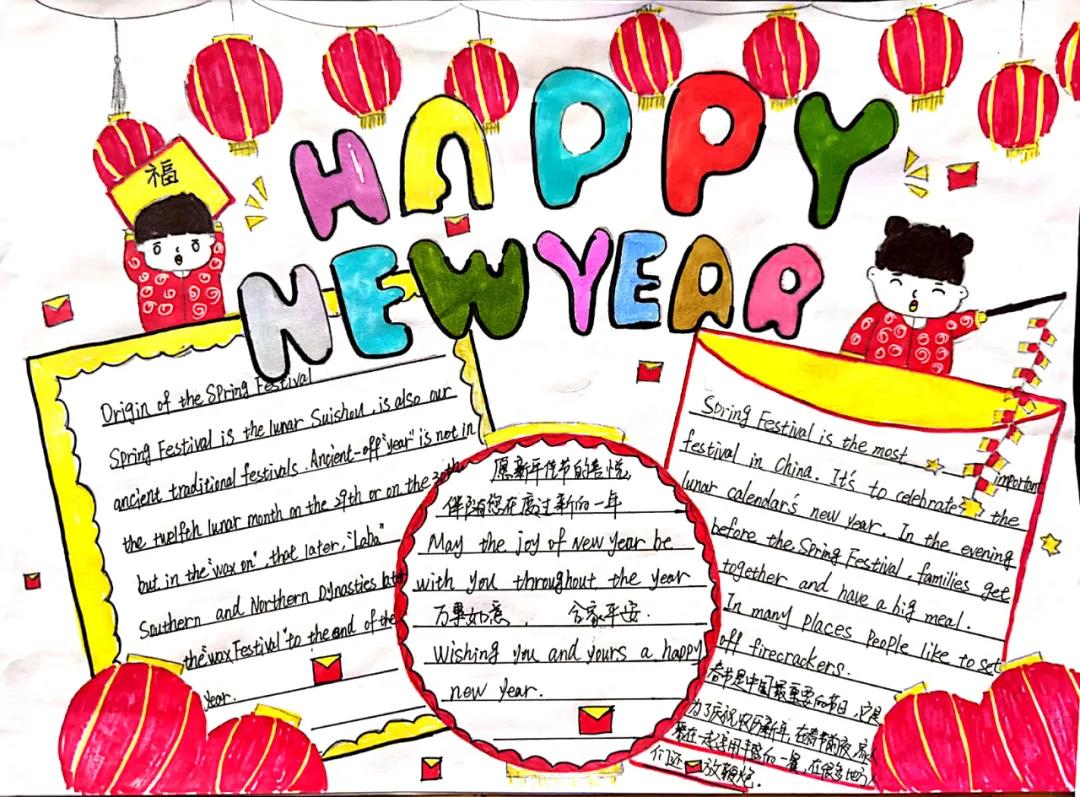 福
HAPPY
NEW YEAR
Origin of the Spring Festival
Spring Festival is the lunar Suishou, is also our
ancient traditional festivals. Ancient-off "year" is not in
the twelfth lunar month on the 29th or on the 30th
but in the "wax on", that later, "Laba"
Southern and Northern Dynasties
the "wax Festival" to the end of the
year.
愿新年佳节的喜悦
伴随您在度过新的一年
May the joy of New year be
with you throughout the year
万事如意, 合家平安.
Wishing you and yours a happy
new year.
Spring Festival is the most important
festival in China. It's to celebrate the
lunar calendar's new year. In the evening
before the Spring Festival, families get
together and have a big meal.
In many places people like to set
off firecrackers.
春节是中国最重要的节日,它是
为了庆祝农历新年,在春节前夜,家人
聚在一起享用丰盛的一餐,在很多地方人
们还 放鞭炮.